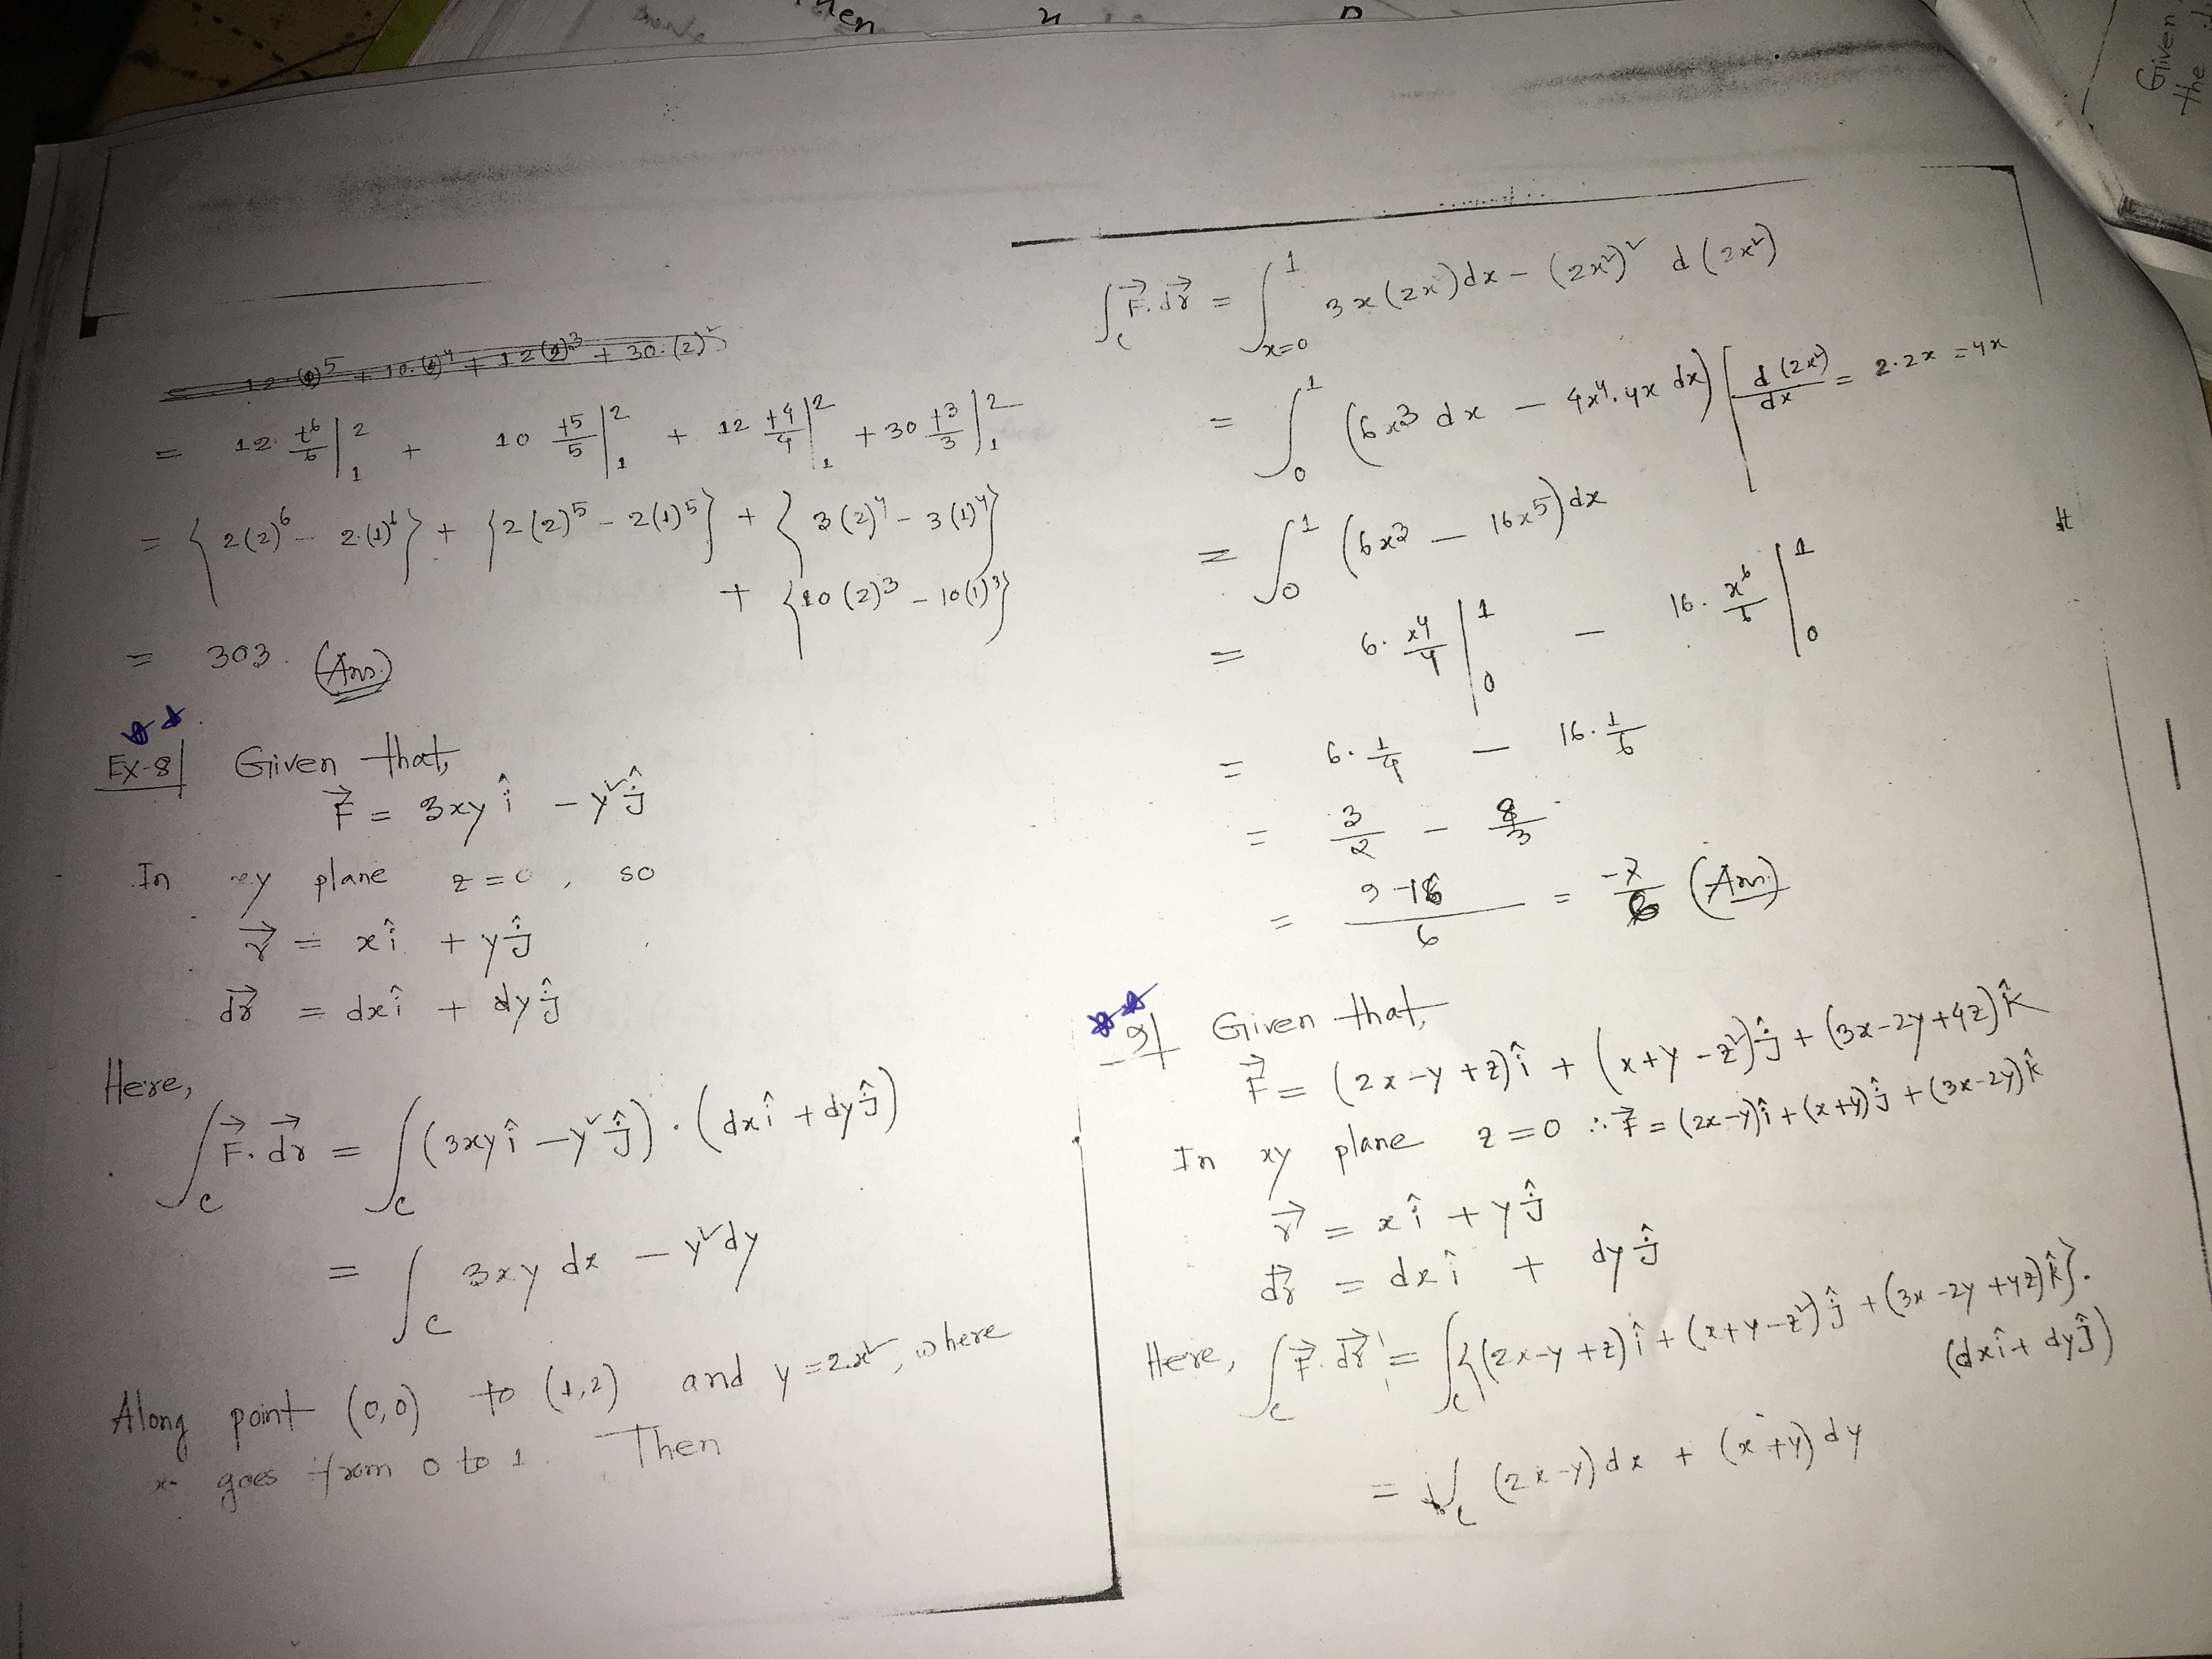 hen
n
Given
the
12·(2)^5 + 10·(2)^4 + 12(2)^3 + 30·(2)^2
= 12·t^6/6 |_1^2 + 10 t^5/5 |_1^2 + 12 t^4/4 |_1^2 + 30 t^3/3 |_1^2
= {2(2)^6 − 2·(1)^6} + {2(2)^5 − 2(1)^5} + {3(2)^4 − 3(1)^4}
+ {10(2)^3 − 10(1)^3}
= 303. (Ans.)
Ex-8| Given that,
F⃗ = 3xy î − y² ĵ
In xy plane z=0, so
r⃗ = xî + yĵ
dr⃗ = dxî + dyĵ
Here,
∫_c F⃗·dr⃗ = ∫_c (3xyî − y²ĵ)·(dxî + dyĵ)
= ∫_c 3xy dx − y²dy
Along point (0,0) to (1,2) and y=2x², where
x goes from 0 to 1. Then
∫_c F⃗·dr⃗ = ∫_{x=0}^1 3x(2x²)dx − (2x²)² d(2x²)
= ∫_0^1 (6x³ dx − 4x⁴·4x dx) [d(2x²)/dx = 2·2x = 4x
= ∫_0^1 (6x³ − 16x⁵)dx
= 6·x⁴/4 |_0^1 − 16·x⁶/6 |_0^1
= 6·1/4 − 16·1/6
= 3/2 − 8/3
= 9−16/6 = −7/6 (Ans.)
9| Given that,
F⃗ = (2x−y+z)î + (x+y−z²)ĵ + (3x−2y+4z)k̂
In xy plane z=0 ∴ F⃗ = (2x−y)î + (x+y)ĵ + (3x−2y)k̂
r⃗ = xî + yĵ
dr⃗ = dxî + dyĵ
Here, ∫_c F⃗·dr⃗ = ∫_c {(2x−y+z)î + (x+y−z²)ĵ + (3x−2y+4z)k̂}.
(dxî + dyĵ)
= ∫_c (2x−y)dx + (x+y)dy